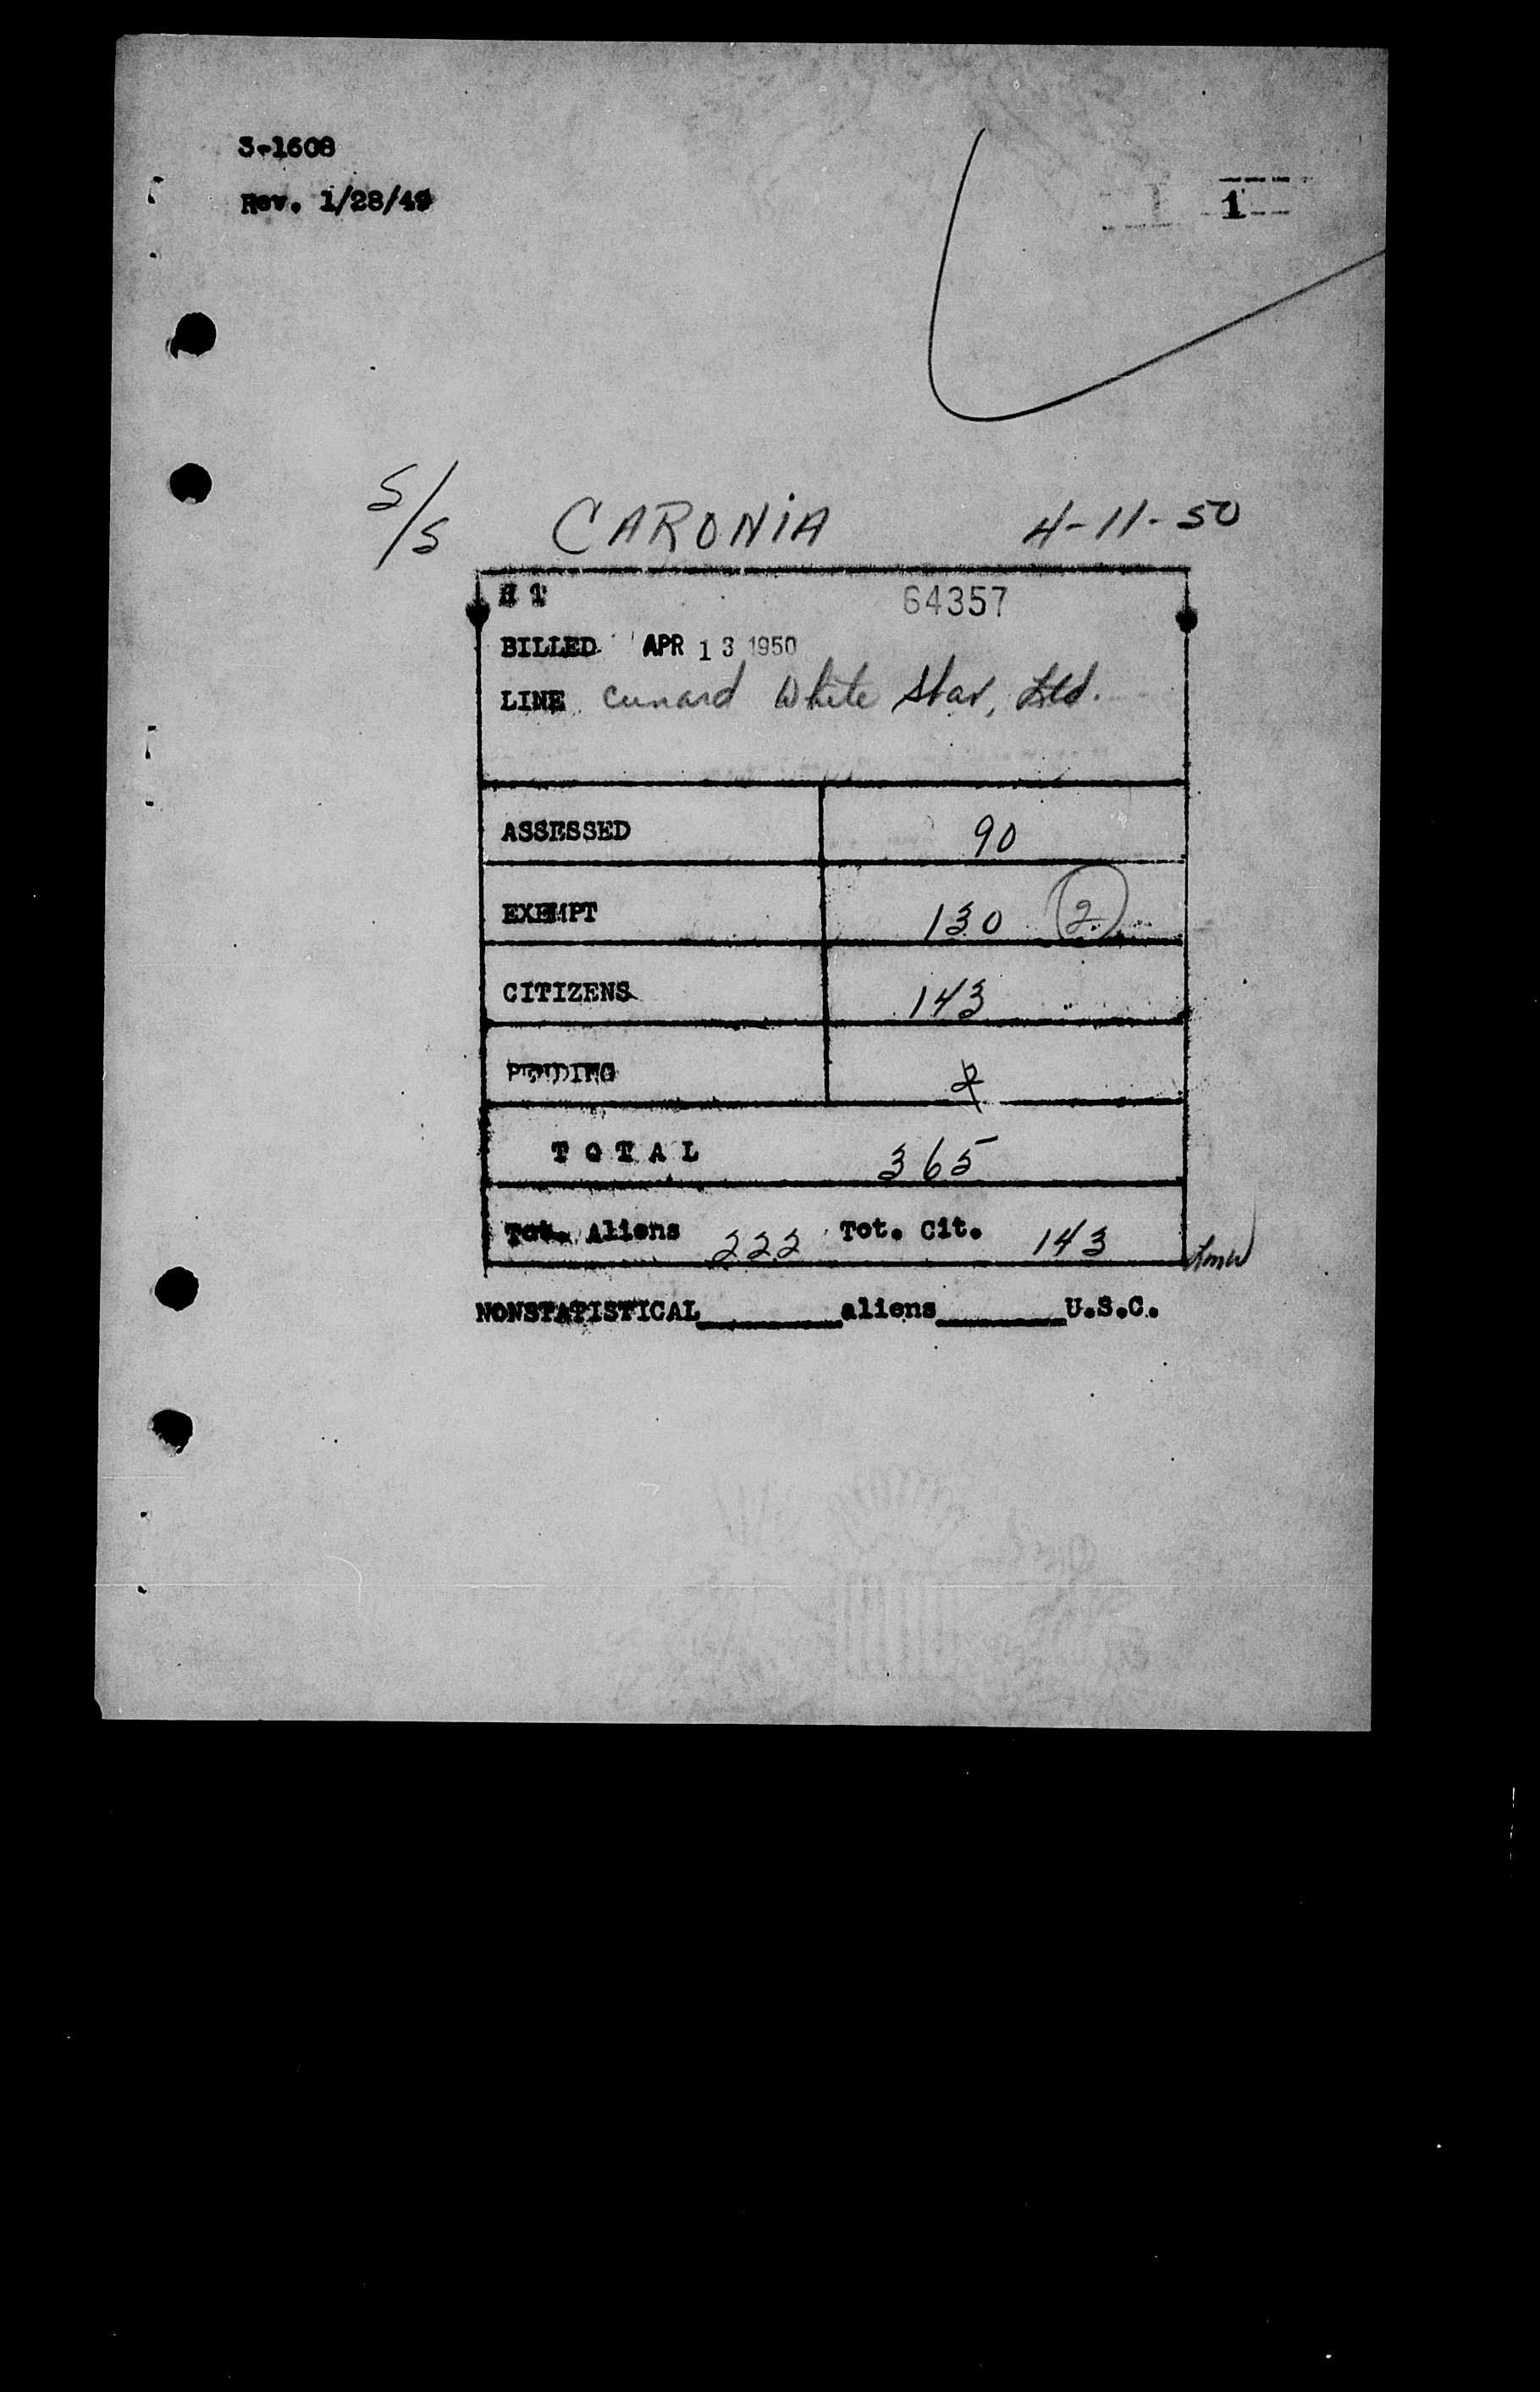 3-1608
Rev. 1/28/49
1
S/S CARONIA 4-11-50
H T 64357
BILLED APR 13 1950
LINE Cunard White Star, Ltd.
ASSESSED 90
EXEMPT 130 2
CITIZENS 143
PENDING 2
TOTAL 365
Tot. Aliens 222 Tot. Cit. 143
NONSTATISTICAL________aliens________U.S.C.